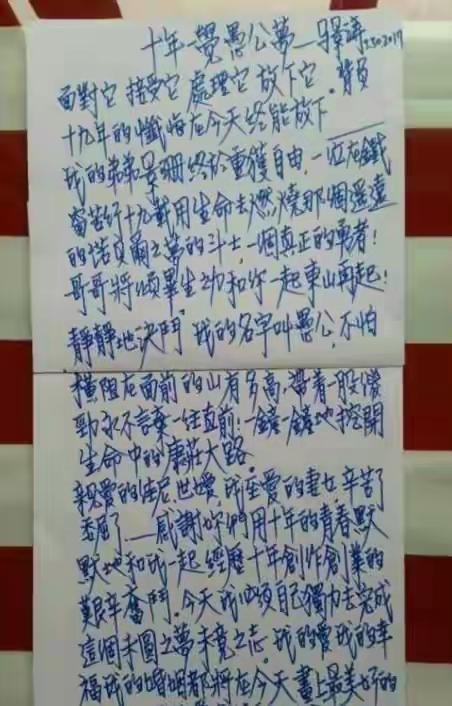 十年一覺愚公夢——張謹2502017
面對它 接受它 處理它 放下它. 背負
十九年的懺悔在今天終能放下———
我的弟弟景珊終於重獲自由, 一位在鐵
窗苦行十九載用生命去燃燒那個遥遠
的諾貝爾之夢的斗士,一個真正的勇者!
哥哥將傾畢生之力和你一起東山再起!
靜靜地決鬥, 我的名字叫愚公, 不怕
橫阻在面前的山有多高, 帶着一股傻
勁永不言棄一往直前! 一鏟一鏟地挖開
生命中的康莊大路.
親愛的佳妮, 世嬡, 我至愛的妻女, 辛苦了
委屈了——感謝你們用十年的青春默
默地和我一起經歷十年創作創業的
艱辛奮鬥. 今天我必須自己獨力去完成
這個未圓之夢未竟之志. 我的愛我的幸
福我的婚姻都將在今天畫上最美好的